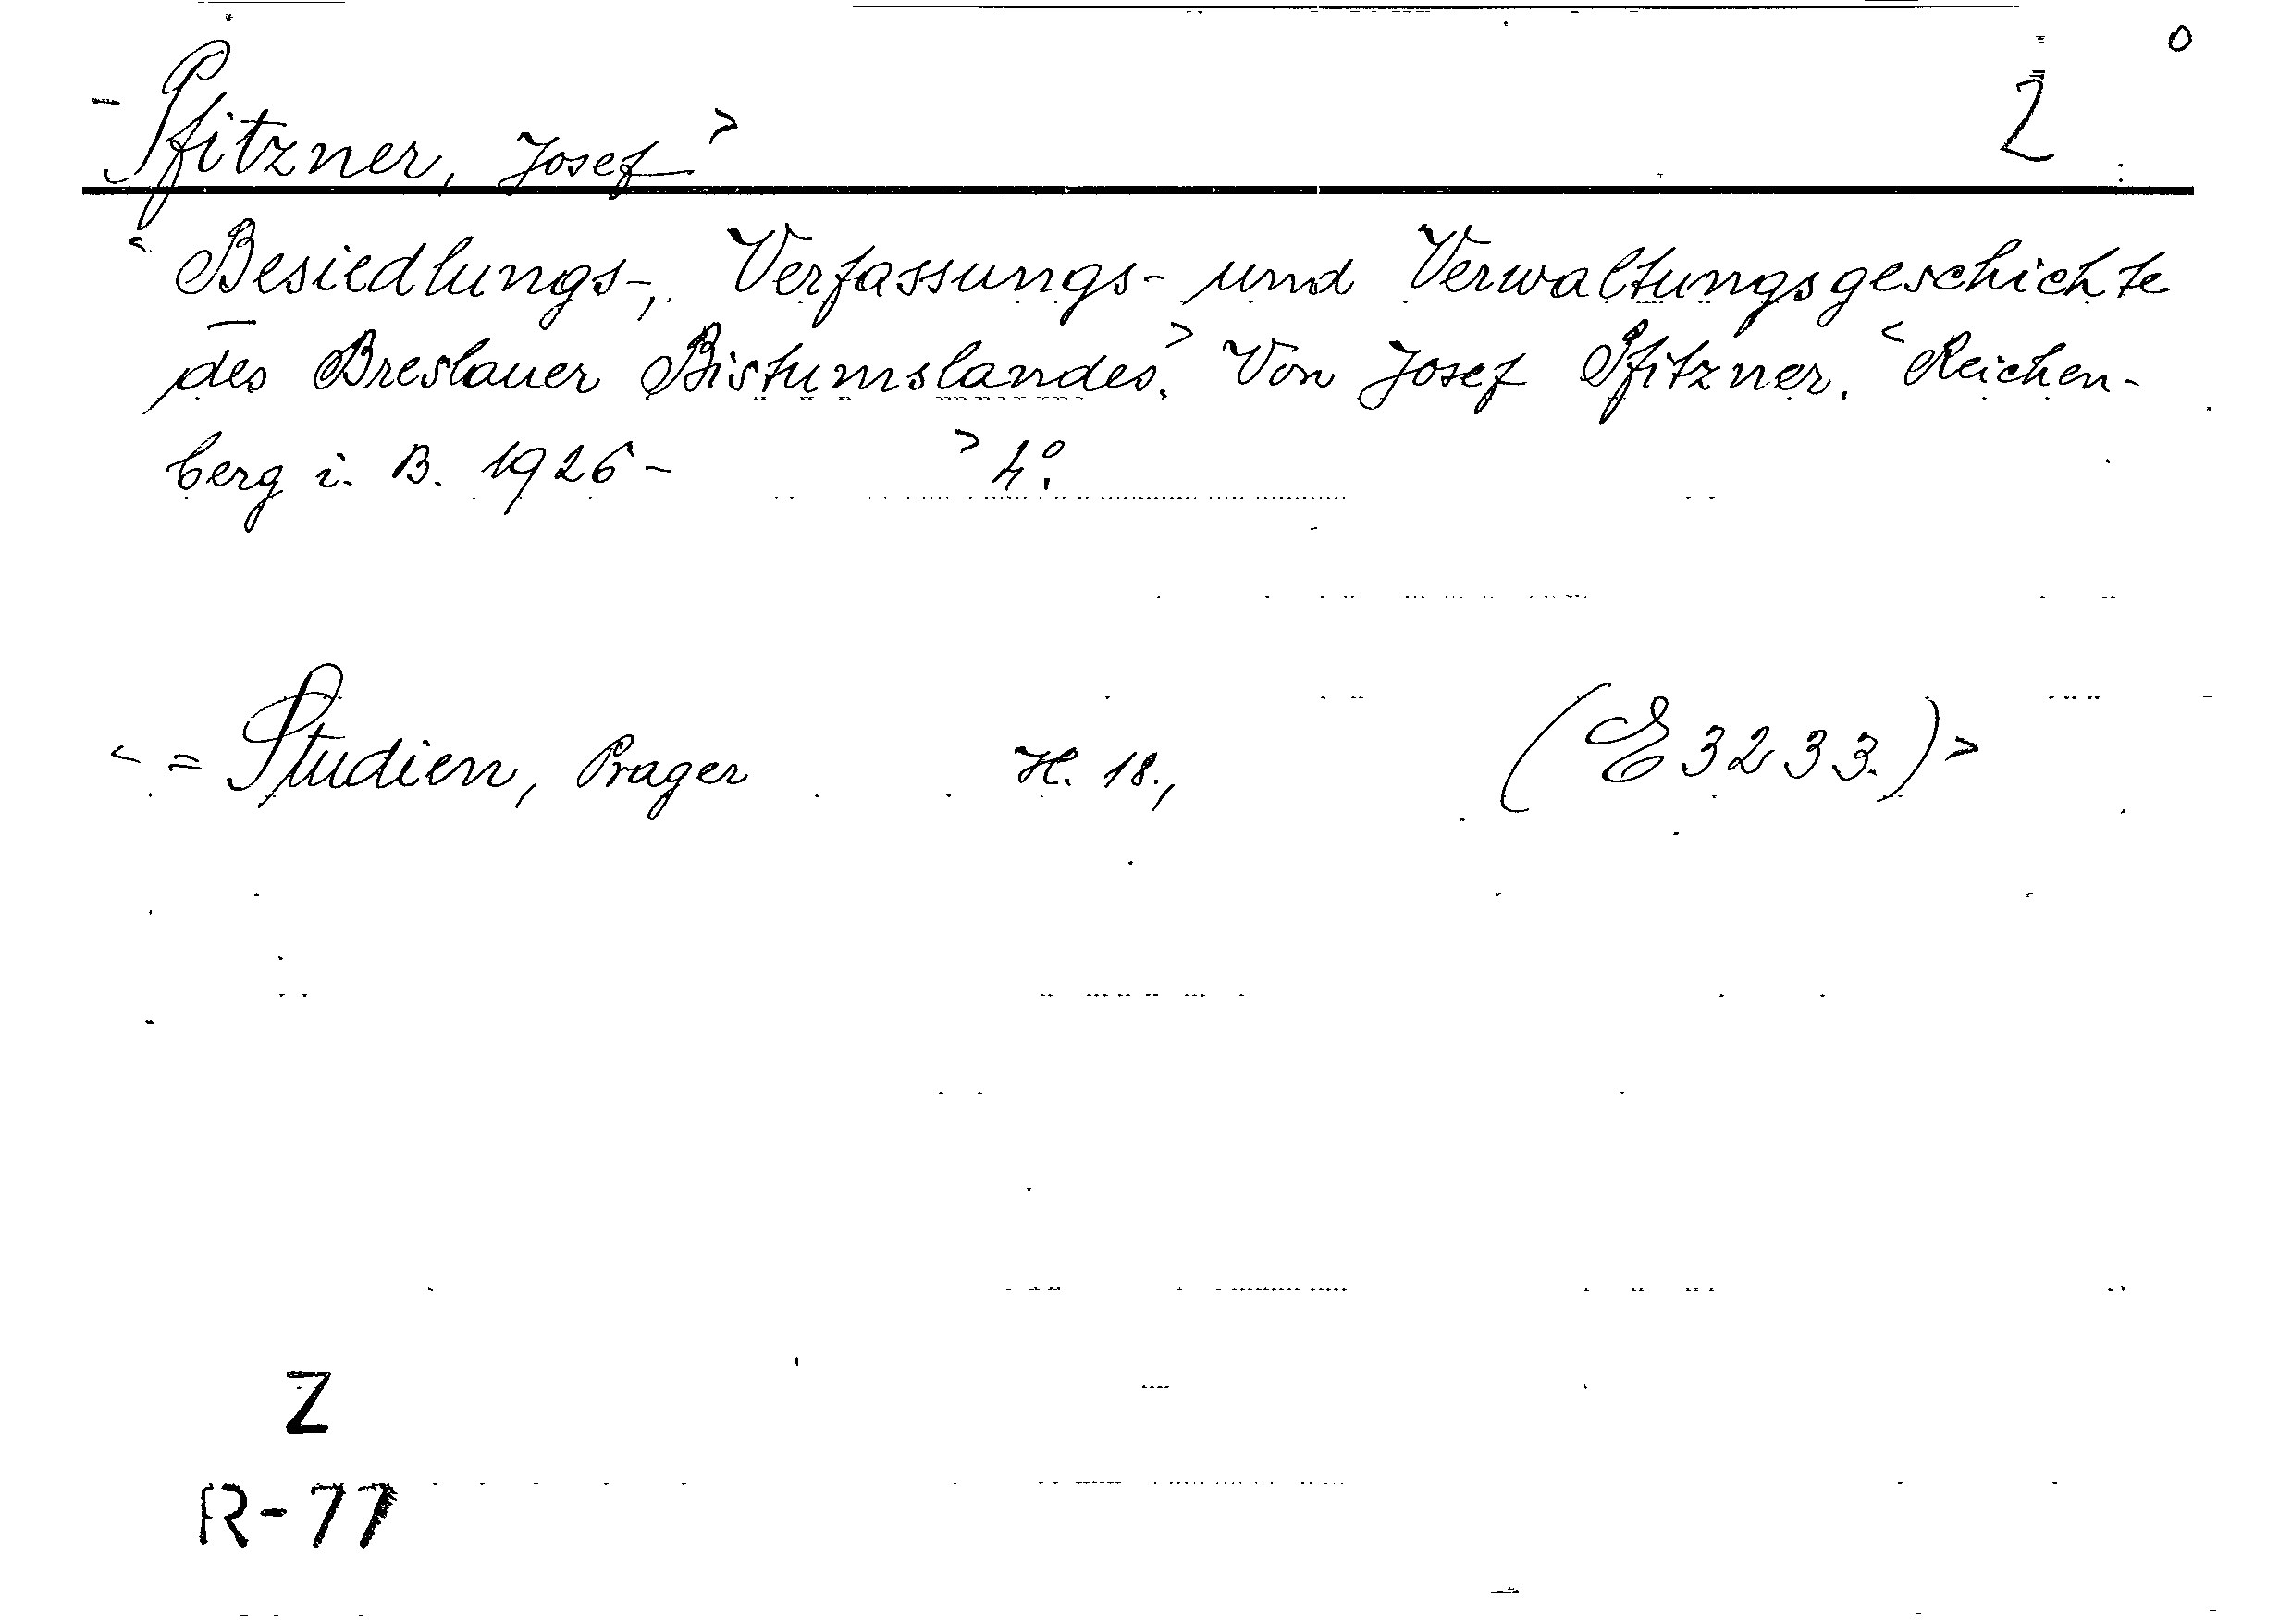 o
Pfitzner, Josef > 2
< Besiedlungs-, Verfassungs- und Verwaltungsgeschichte
des Breslauer Bistumslandes.> Von Josef Pfitzner. < Reichen-
berg i. B. 1926- > 4°.
< = Studien, Prager H. 18., (E 3233.) >
Z
R-77